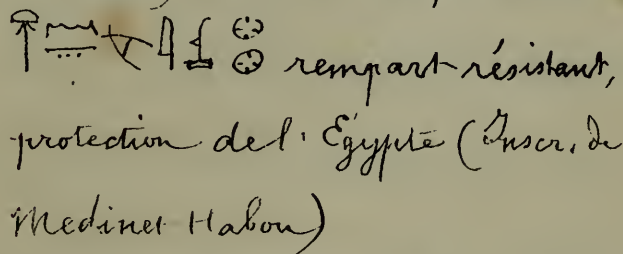 rempart résistant,
protection de l'Égypte (Inscr. de
Medinet Habou)